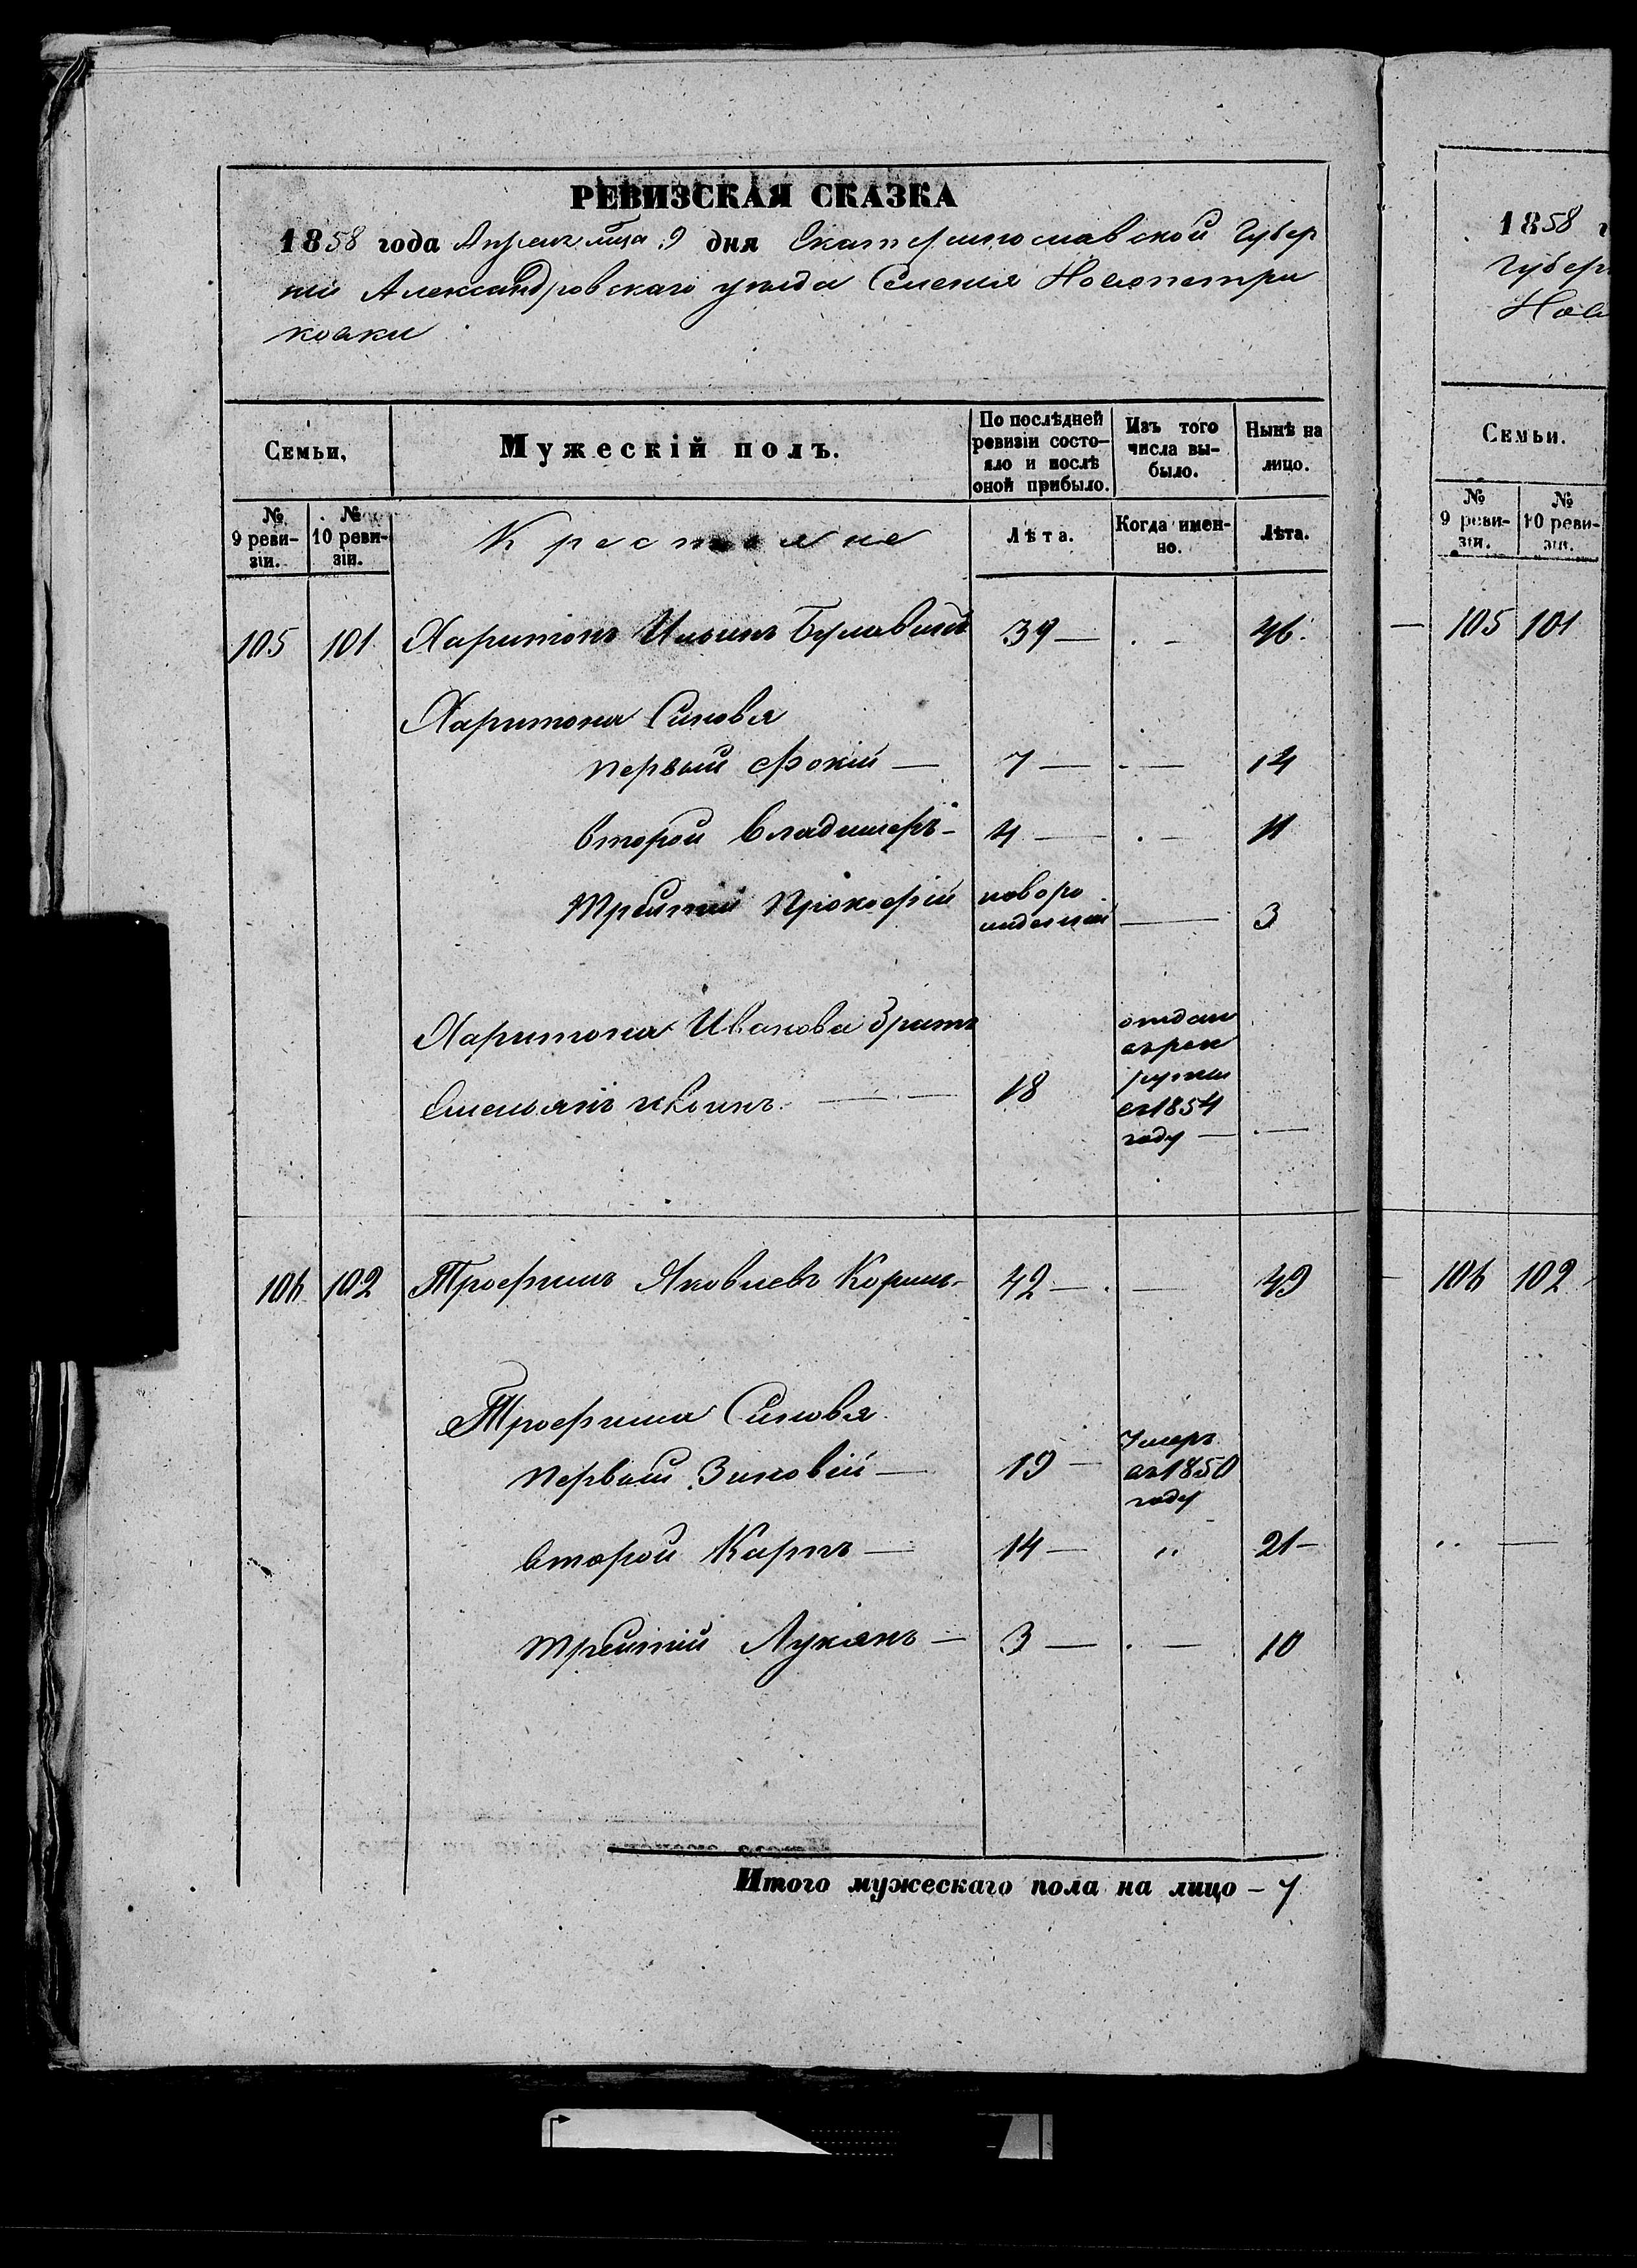 РЕВИЗСКАЯ СКАЗКА
1858 года Апреля мца 9 дня Екатеринославской Губер
нии Александровскаго уезда Селения Новопетри
ковки
Семьи. Мужескій полъ. По послѣдней ревизіи состо- яло и послѣ оной прибыло. Изъ того числа вы- было. Нынѣ на лицо.
№ 9 реви- зіи. № 10 реви- зіи. Крестьяне Лѣта. Когда имен- но. Лѣта.
105 101 Харитонъ Ильинъ Булавинъ 39 — . – 46.
Харитона Синовя
первый Фокій — 7 — . — 14
второй Владимеръ – 4 — . – 11
Третий Прокофій новоро жденный — 3
Харитона Иванова братъ
Емельянъ 18 отдан въ рек руты въ 1854 году — . —
106 102 Трофимъ Яковлевъ 42 — . — 49
Трофима Синовя
первый Зиновій — 19 — Умеръ въ 1850 году
второй Карпъ — 14 — " 21 –
третий Лукянъ — 3 — . — 10
Итого мужескаго пола на лицо – 7
1858 г
Губер
Нов
Семьи.
№ 9 реви- зіи. № 10 реви- зіи.
— 105 101
– 106 102